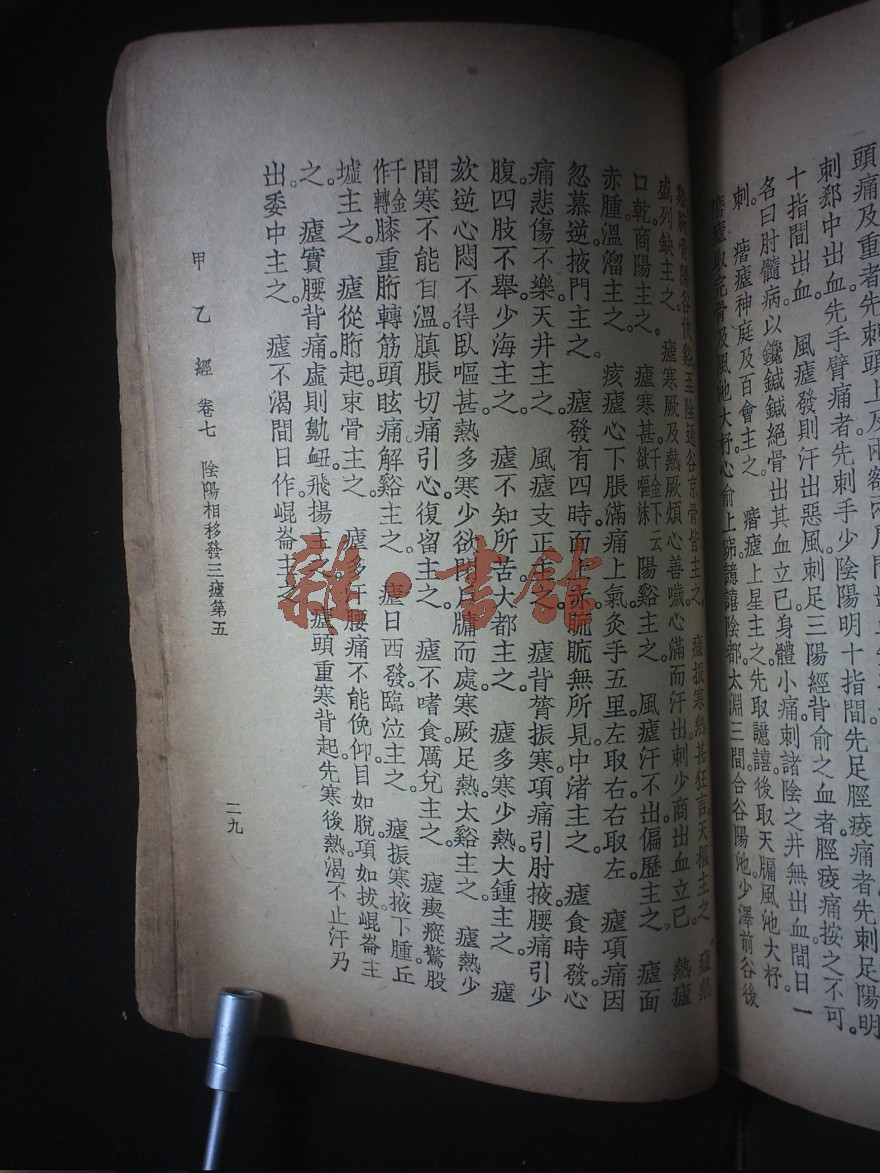 頭痛及重者先刺頭上及兩額兩
刺郄中出血。先手臂痛者先刺手少陰陽明十指間。先足脛痠痛者先刺足陽明
十指間出血。 風瘧發則汗出惡風刺足三陽經背俞之血者。脛痠痛按之不可。
名曰胕髓病。以鑱鍼鍼絕骨出其血立已。身體小痛刺諸陰之井無出血間日一
刺。 痎瘧神庭及百會主之。 痎瘧上星主之。先取譩譆後取天牖風池大杼。
痎瘧取完骨及風池大杼心俞上窌譩譆陰都太淵三間合谷陽池少澤前谷後
谿腕骨陽谷俠谿至陰通谷京骨皆主之。 瘧振寒熱甚狂言。天樞主之。 瘧熱
盛列缺主之。 瘧寒厥及熱厥煩心善噦心滿而汗出刺少商出血立已。 熱瘧
口乾商陽主之。 瘧寒甚欲嘔沫千金下云陽谿主之。 風瘧汗不出偏歷主之。 瘧面
赤腫溫溜主之。 痎瘧心下脹滿痛上氣灸手五里左取右右取左。 瘧項痛因
忽慕逆掖門主之。 瘧發有四時面上赤䀮䀮無所見中渚主之。 瘧食時發心
痛悲傷不樂天井主之。 風瘧支正主之。 瘧背膂振寒項痛引肘掖腰痛引少
腹四肢不舉少海主之。 瘧不知所苦大都主之。 瘧多寒少熱大鍾主之。 瘧
欬逆心悶不得臥嘔甚熱多寒少欲閉戶牖而處寒厥足熱太谿主之。 瘧熱少
間寒不能自溫䐜脹切痛引心復留主之。 瘧不嗜食厲兌主之。 瘧瘈瘲驚股
千金作轉膝重胻轉筋頭眩痛解谿主之。 瘧日西發臨泣主之。 瘧振寒掖下腫丘
墟主之。 瘧從胻起束骨主之。 瘧多汗腰痛不能俛仰目如脫項如拔崐崙主
之。 瘧實腰背痛虛則鼽衄飛揚主之。 瘧頭重寒背起先寒後熱渴不止汗乃
出。委中主之。 瘧不渴間日作。崐崙主之。
甲乙經 卷七 陰陽相移發三瘧第五
二九
雜·書館